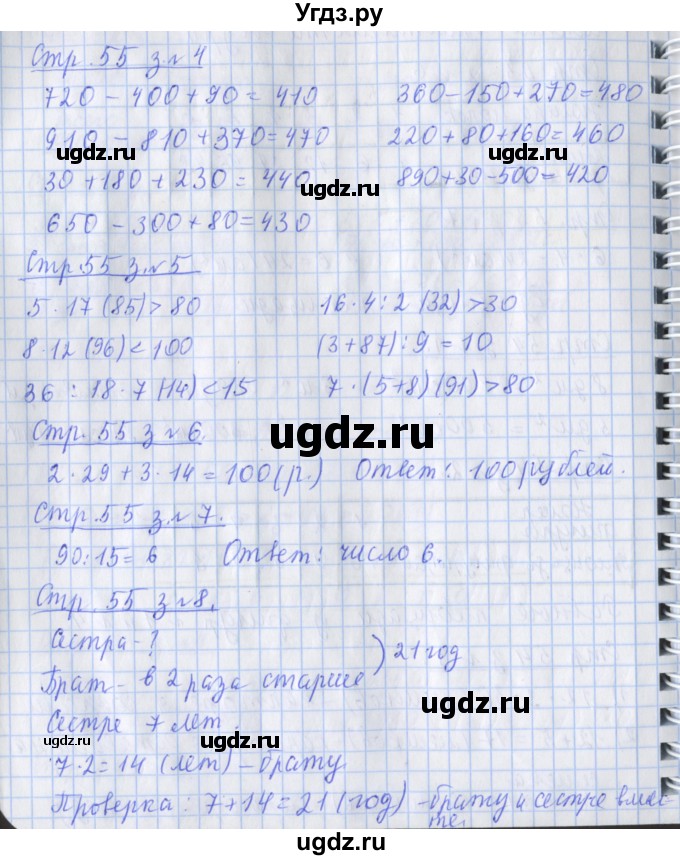 Угдз.ру
Стр. 55 з.№4
720 - 400 + 90 = 410 360 - 150 + 270 = 480
910 - 810 + 370 = 470 220 + 80 + 160 = 460
ugdz.ru ugdz.ru
30 + 180 + 230 = 440 890 + 30 - 500 = 420
ugdz.ru
650 - 300 + 80 = 430
Стр. 55 з.№5
5 · 17 (85) > 80 16 · 4 : 2 (32) > 30
8 · 12 (96) < 100 (3 + 87) : 9 = 10
36 : 18 · 7 (14) < 15 7 · (5 + 8) (91) > 80
Стр. 55 з №6.
ugdz.ru
2 · 29 + 3 · 14 = 100 (р.) Ответ: 100 рублей.
Стр. 55 з.№7.
90 : 15 = 6 Ответ: число 6.
ugdz.ru
Стр. 55 з №8.
Сестра - ?
Брат - в 2 раза старше ) 21 год
ugdz.ru
Сестре 7 лет.
ugdz.ru ugdz.ru
7 · 2 = 14 (лет) - брату
Проверка: 7 + 14 = 21 (год) - брату и сестре вмес-
те.
ugdz.ru